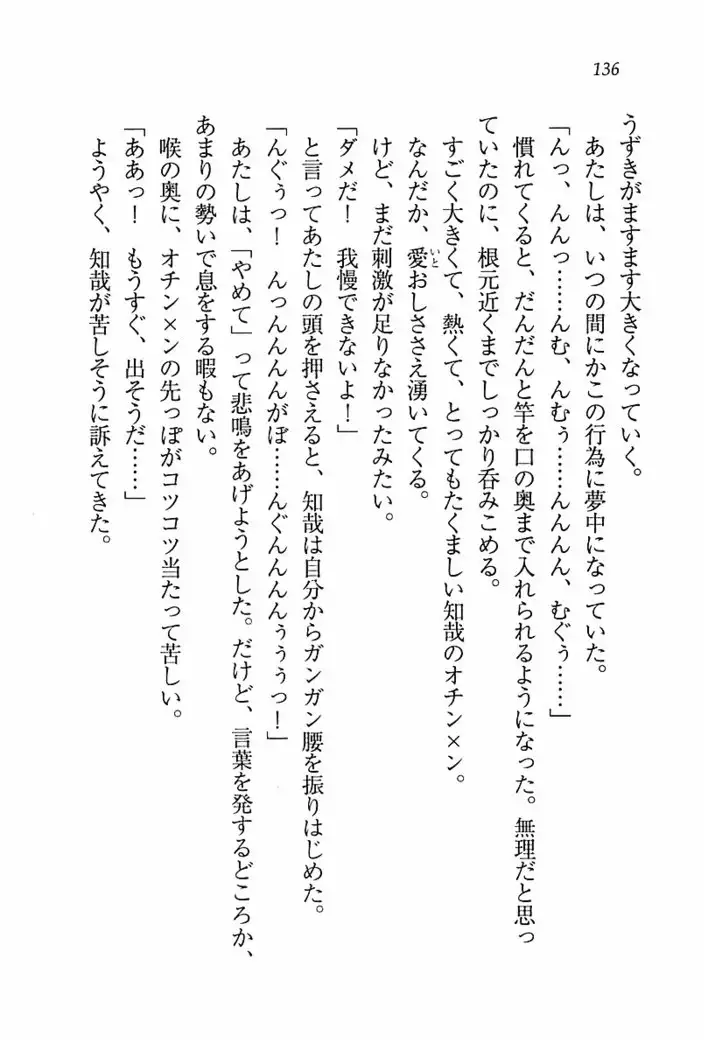 136
うずきがますます大きくなっていく。
あたしは、いつの間にかこの行為に夢中になっていた。
「んっ、んんっ……んむ、んむぅ……んんんん、むぐぅ……」
慣れてくると、だんだんと竿を口の奥まで入れられるようになった。無理だと思っ
ていたのに、根元近くまでしっかり呑みこめる。
すごく大きくて、熱くて、とってもたくましい知哉のオチン×ン。
なんだか、愛おしささえ湧いてくる。
けど、まだ刺激が足りなかったみたい。
「ダメだ！　我慢できないよ！」
と言ってあたしの頭を押さえると、知哉は自分からガンガン腰を振りはじめた。
「んぐぅっ！　んっんんんんがぼ……んぐんんんんぅぅぅっ！」
あたしは、「やめて」って悲鳴をあげようとした。だけど、言葉を発するどころか、
あまりの勢いで息をする暇もない。
喉の奥に、オチン×ンの先っぽがコツコツ当たって苦しい。
「ああっ！　もうすぐ、出そうだ……」
ようやく、知哉が苦しそうに訴えてきた。